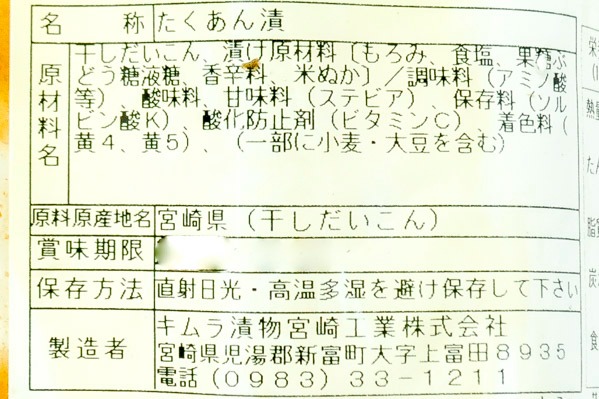 名称 たくあん漬
原材料名 干しだいこん、漬け原材料〔もろみ、食塩、果糖ぶ
どう糖液糖、香辛料、米ぬか〕／調味料（アミノ酸
等）、酸味料、甘味料（ステビア）、保存料（ソル
ビン酸K）、酸化防止剤（ビタミンC）、着色料（
黄4、黄5）、（一部に小麦・大豆を含む）
原料原産地名 宮崎県（干しだいこん）
賞味期限
保存方法 直射日光・高温多湿を避け保存して下さい
製造者 キムラ漬物宮崎工業株式会社
宮崎県児湯郡新富町大字上富田8935
電話（0983）33-1211